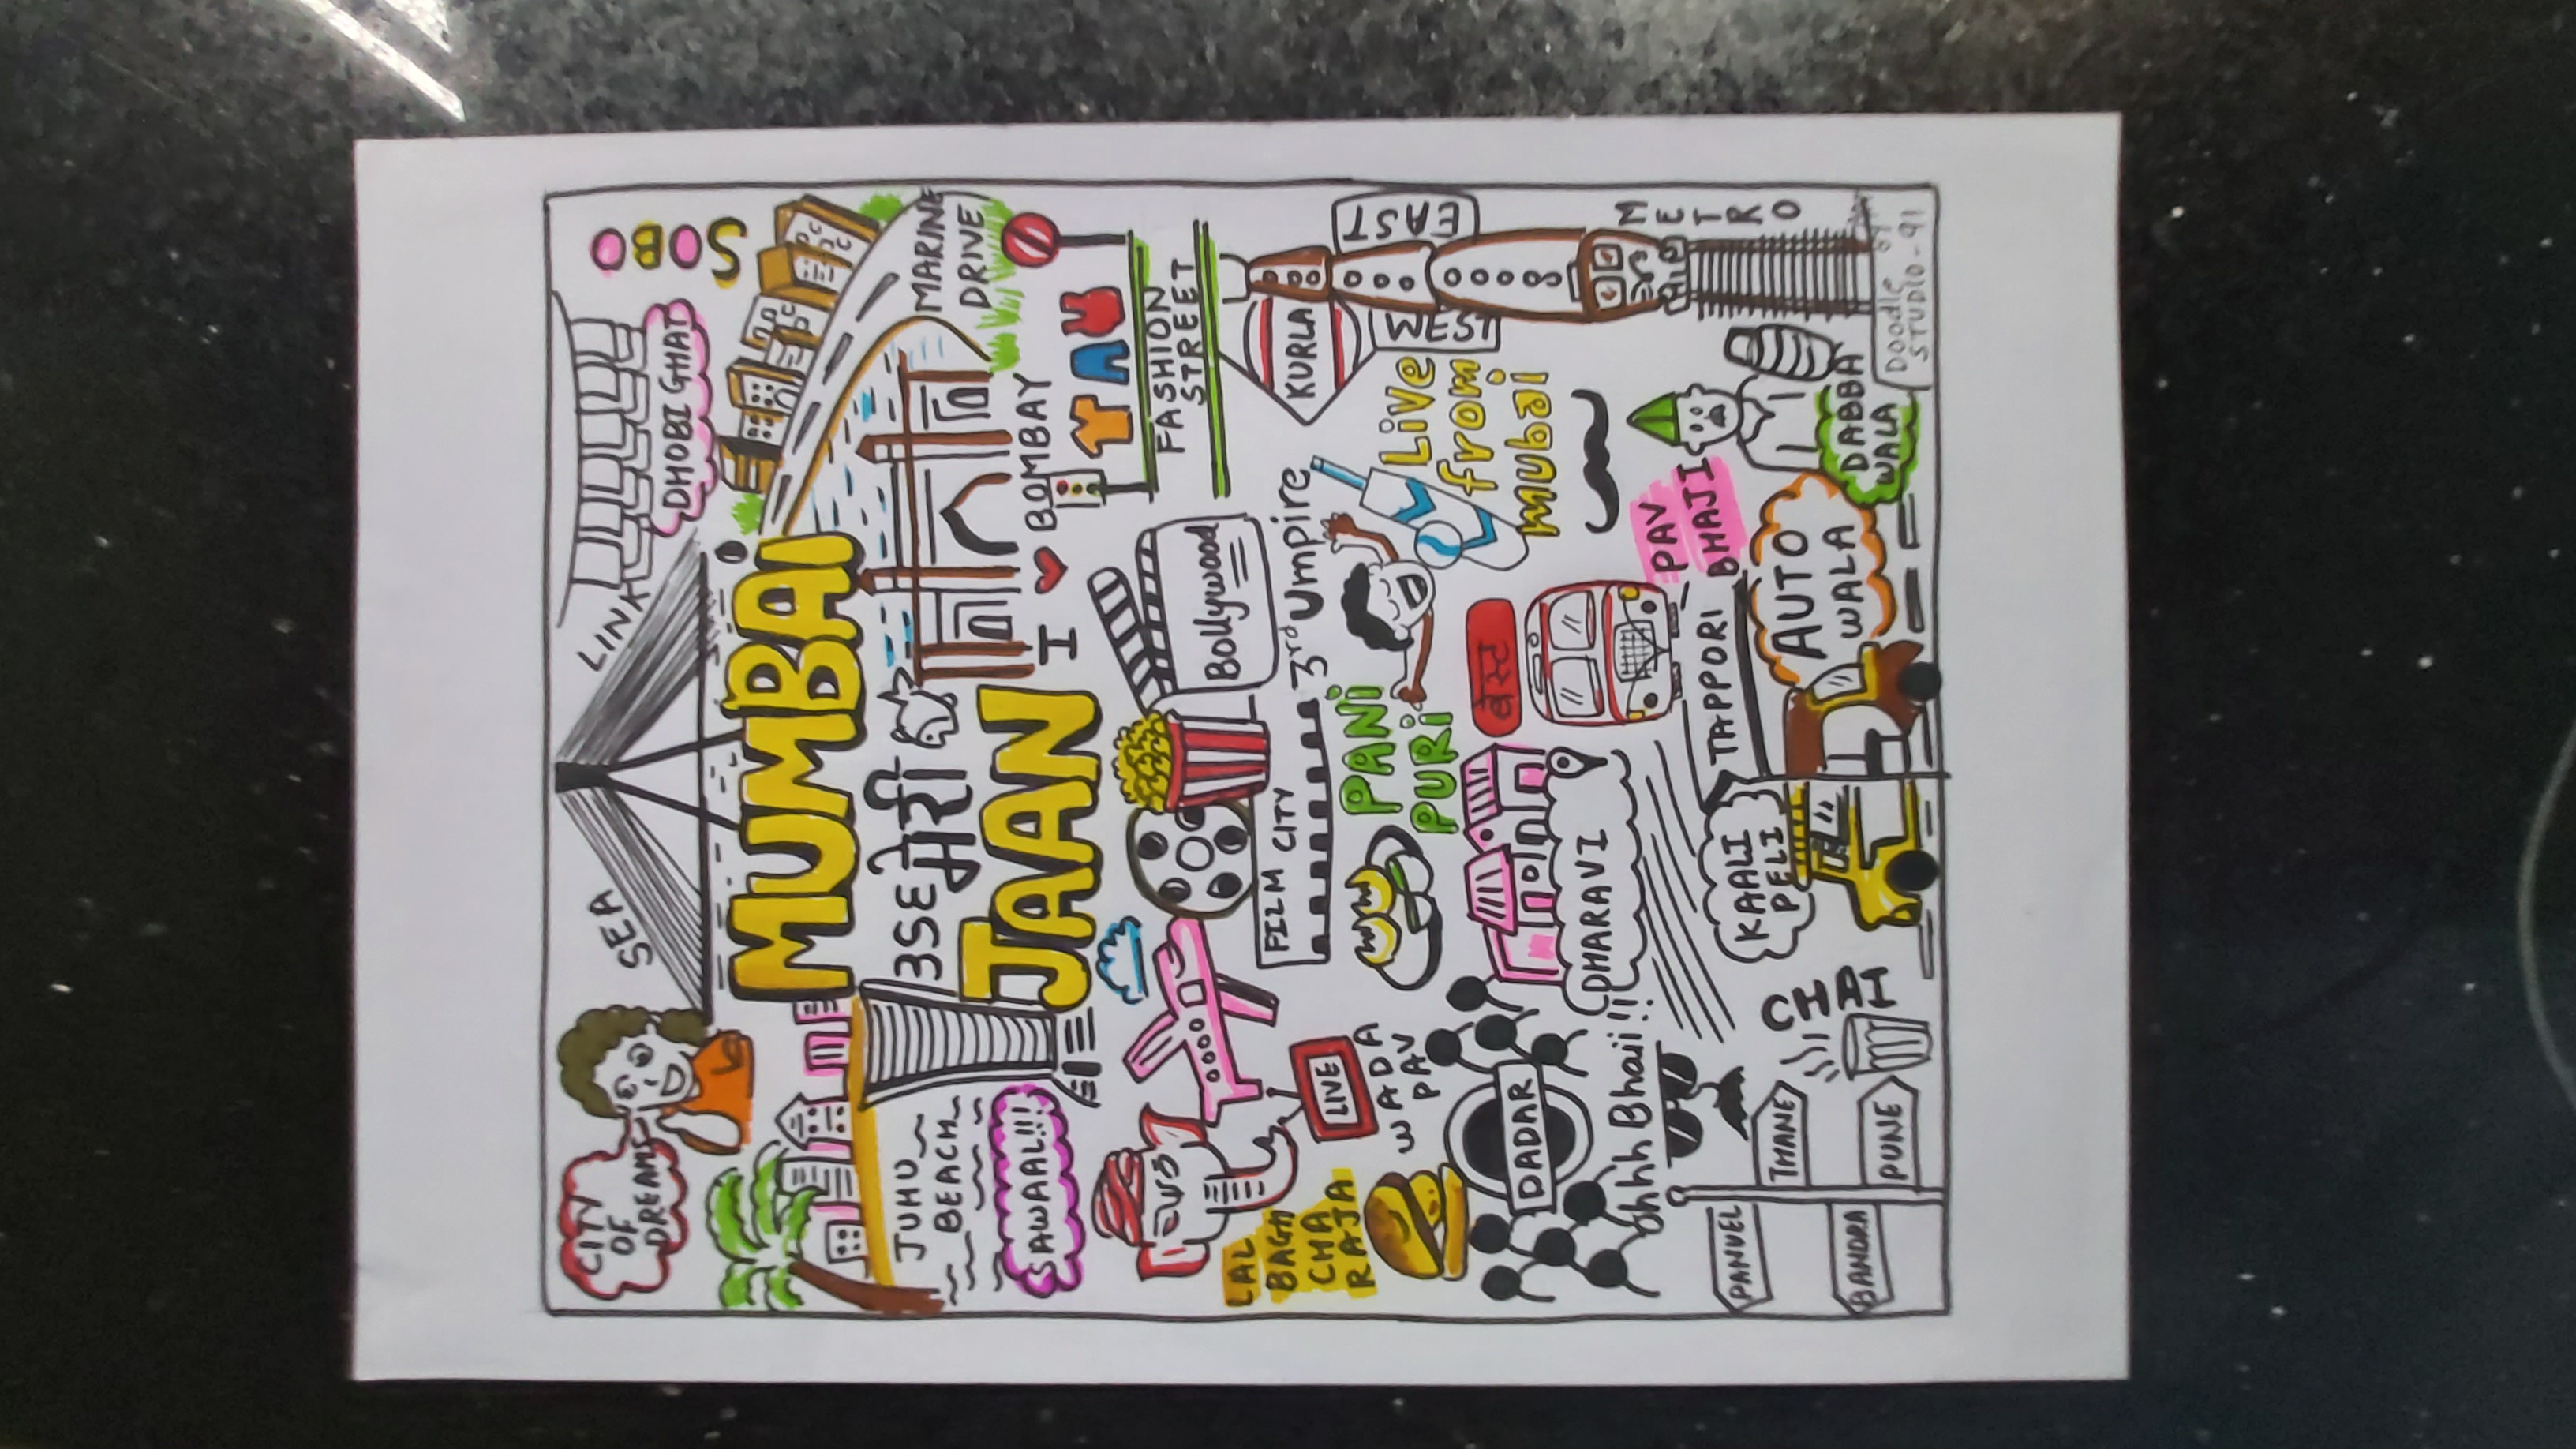 CITY
OF
DREAMS
SEA
LINK
DHOBI GHAT
SOBO
MUMBAI
मेरी
JAAN
JUHU
BEACH
SAWAAL!!!
MARINE
DRIVE
I ❤ BOMBAY
FASHION
STREET
Bollywood
FILM CITY
3rd Umpire
LAL
BAGH
CHA
RAJA
LIVE
WADA
PAV
PANI
PURI
Live
from
mubai
KURLA
EAST
WEST
METRO
DADAR
DHARAVI
बेस्ट
PAV
BHAJI
Ohhh Bhaii!!
TAPPORI
KAALI
PELI
AUTO
WALA
DABBA
WALA
CHAI
PANVEL
THANE
BANDRA
PUNE
Doodle by
STUDIO-91